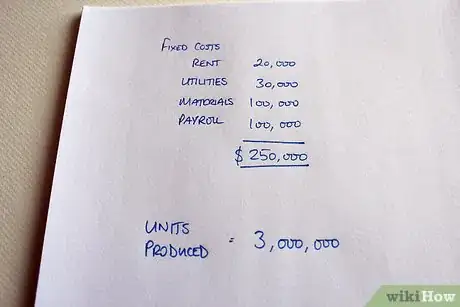 FIXED COSTS
RENT 20,000
UTILITIES 30,000
MATERIALS 100,000
PAYROLL 100,000
$ 250,000
UNITS
PRODUCED = 3,000,000
wikiHow